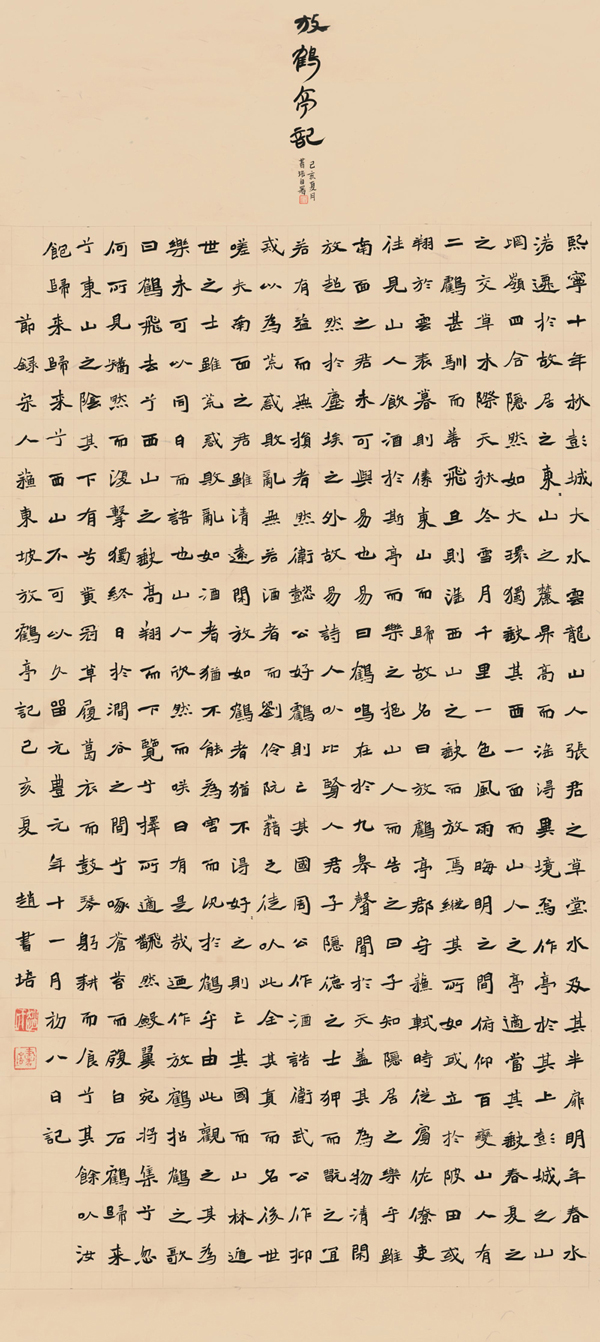 放鶴亭記
己亥夏月
書培自署
熙寧十年秋彭城大水雲龍山人張君之草堂水及其半扉明年春水
落遷於故居之東山之麓昇高而望得異境焉作亭於其上彭城之山
岡嶺四合隱然如大環獨缺其西一面而山人之亭適當其缺春夏之
之交草木際天秋冬雪月千里一色風雨晦明之間俯仰百變山人有
二鶴甚馴而善飛旦則望西山之缺而放焉縱其所如或立於陂田或
翔於雲表暮則傃東山而歸故名曰放鶴亭郡守蘇軾時從賓佐僚吏
往見山人飲酒於斯亭而樂之挹山人而告之曰子知隱居之樂乎雖
南面之君未可與易也易曰鶴鳴在於九皋聲聞於天蓋其為物清閑
放超然於塵埃之外故易詩人以比賢人君子隱德之士狎而翫之宜
若有益而無損者然衛懿公好鶴則亡其國周公作酒誥衛武公作抑
或以為荒惑敗亂無若酒者而劉伶阮籍之徒以此全其真而名後世
嗟夫南面之君雖清遠閑放如鶴者猶不得好之則亡其國而山林遁
世之士雖荒惑敗亂如酒者猶不能為害而況於鶴乎由此觀之其為
樂未可以同日而語也山人欣然而笑曰有是哉迺作放鶴招鶴之歌
曰鶴飛去兮西山之缺高翔而下覽兮擇所適翻然斂翼宛將集兮忽
何所見矯然而復擊獨終日於澗谷之間兮啄蒼苔而履白石鶴歸來
兮東山之陰其下有兮黃冠草履葛衣而鼓琴躬耕而食兮其餘以汝
飽歸來歸來兮西山不可以久留元豐元年十一月初八日記
節錄宋人蘇東坡放鶴亭記己亥夏 趙書培